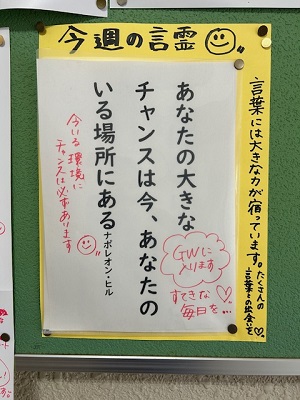 今週の言霊
言葉には大きな力が宿っています。たくさんの
言葉との出会いを♡
あなたの大きな
チャンスは今、あなたの
いる場所にある
ナポレオン・ヒル
GWに
入ります
すてきな
毎日を…
今いる環境に
チャンスは必ずあります